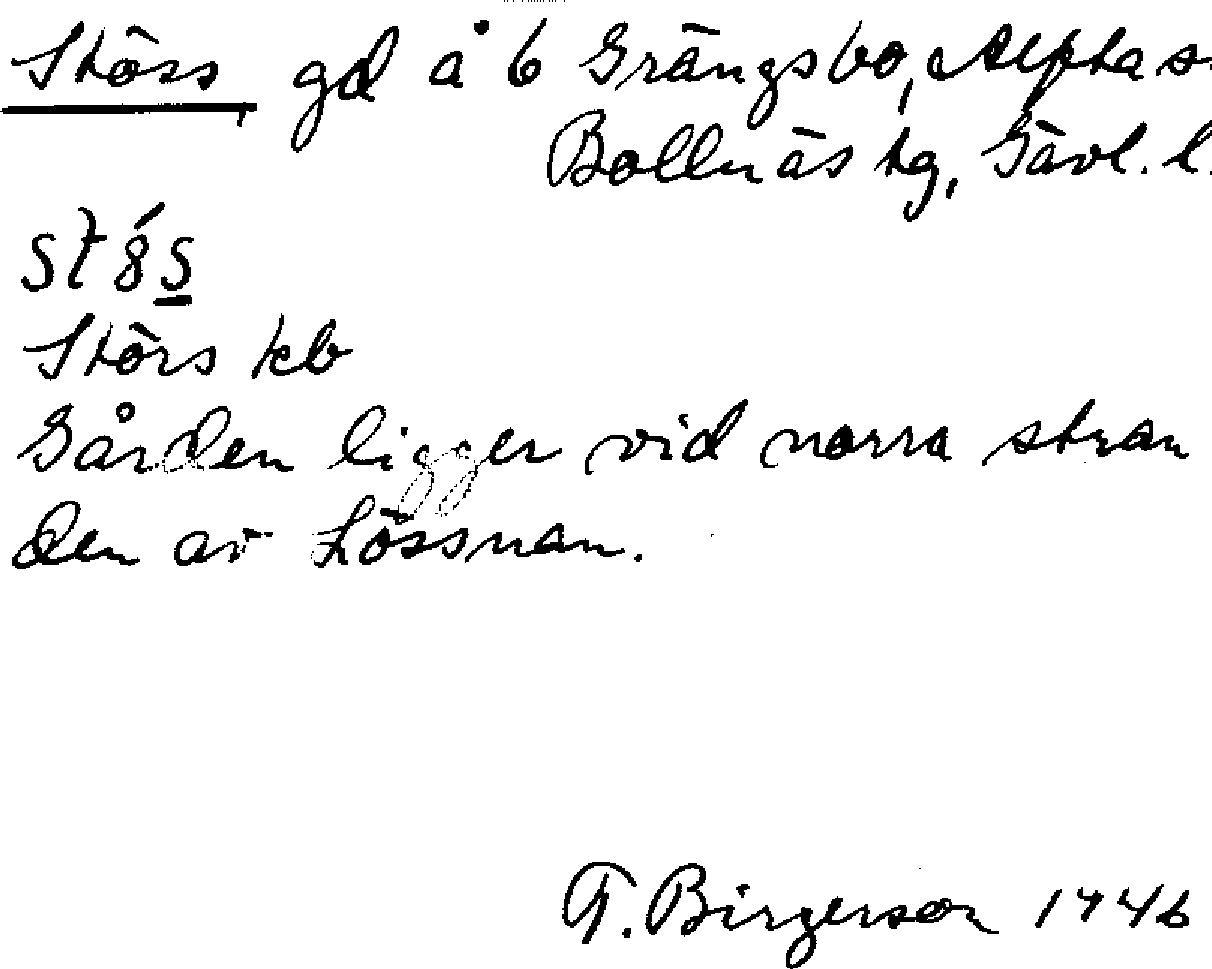 Stöss, gd å 6 Grängsbo, Alfta s.
Bollnäs tg, Gävl. l.
Störs kb
Gården ligger vid norra stran
den av Lössnan.
G. Birgerson 1946